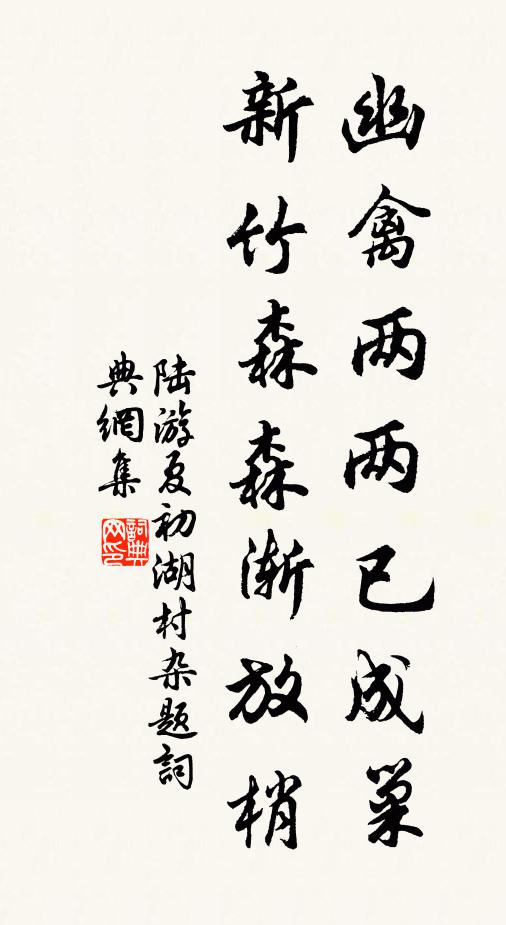 幽禽两两已成巢
新竹森森渐放梢
陆游夏初湖村杂题詞
典網集
詞典网印